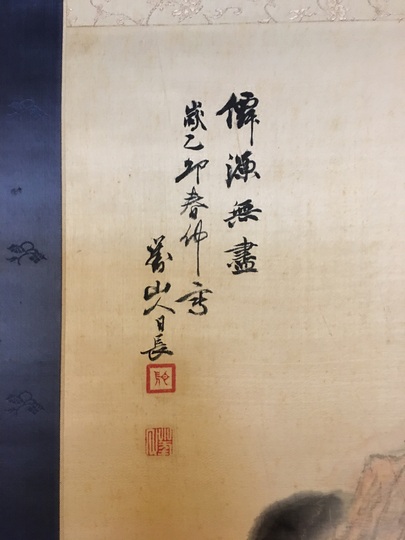 僊源無盡
歲乙卯春仲寫
山人日長